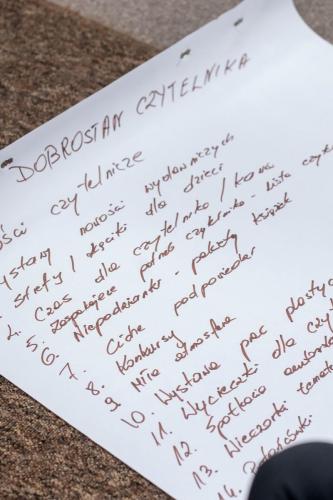 DOBROSTAN CZYTELNIKA
ści czytelnicze
ystawy nowości wydawniczych
strefy / kąciki dla dzieci
4. Czas dla czytelnika /
5. Zaspokajanie potrzeb czytelnika - lista czyte
6. Niespodzianki - pakiety książek
7. Ciche podpowiedzi
8. Konkursy
9. Miła atmosfera
10. Wystawa prac plastycz
11. Wycieczki dla czy
12. Spotkania autors
13. Wieczorki temat
14.